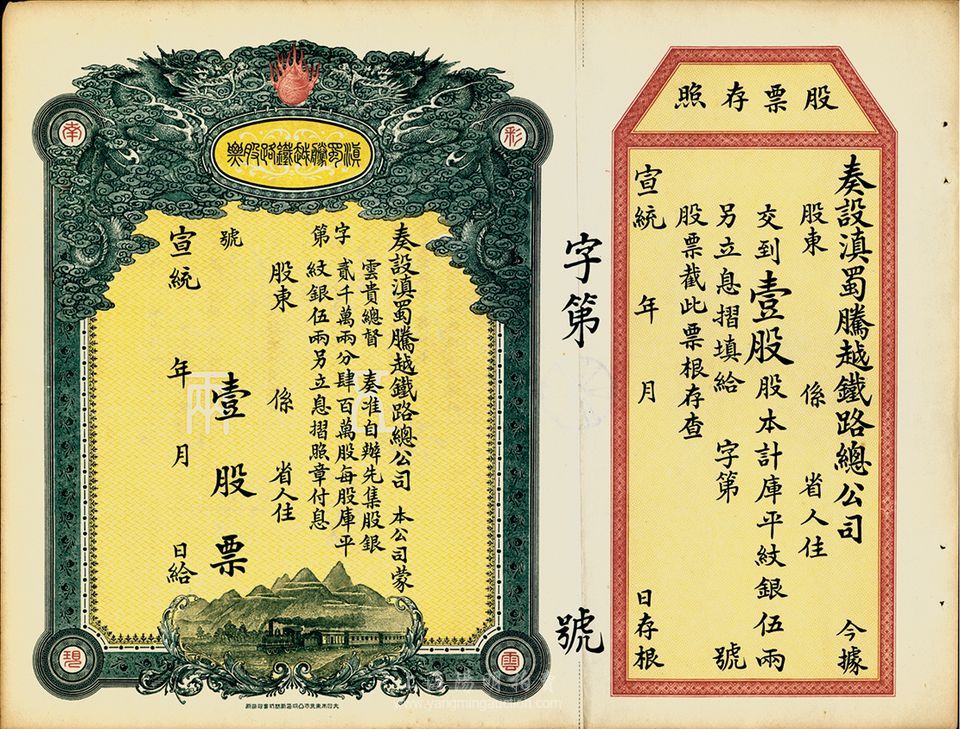 股票存照
奏設滇蜀騰越鐵路總公司 今據
股東 係 省人住
交到壹股股本計庫平紋銀伍兩
另立息摺填給 字第 號
股票截此票根存查
宣統 年 月 日存根
字第 號
滇蜀騰越鐵路股票
彩
雲
南
現
奏設滇蜀騰越鐵路總公司 本公司蒙
雲貴總督 奏准自辦先集股銀
字貳千萬兩分肆百萬股每股庫平
第紋銀伍兩另立息摺照章付息
股東 係 省人住
號
壹股票
宣統 年 月 日給
五兩
www.yangmingauction.com